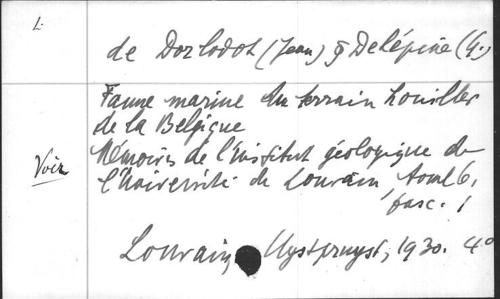 L.
de Dorlodot (Jean) & Delépine (G.)
Faune marine du terrain houiller
de la Belgique
Voir
Mémoires de l'institut géologique de
l'Université de Louvain, tome 6,
fasc. 1
Louvain, Uystpruyst, 1930. 4°